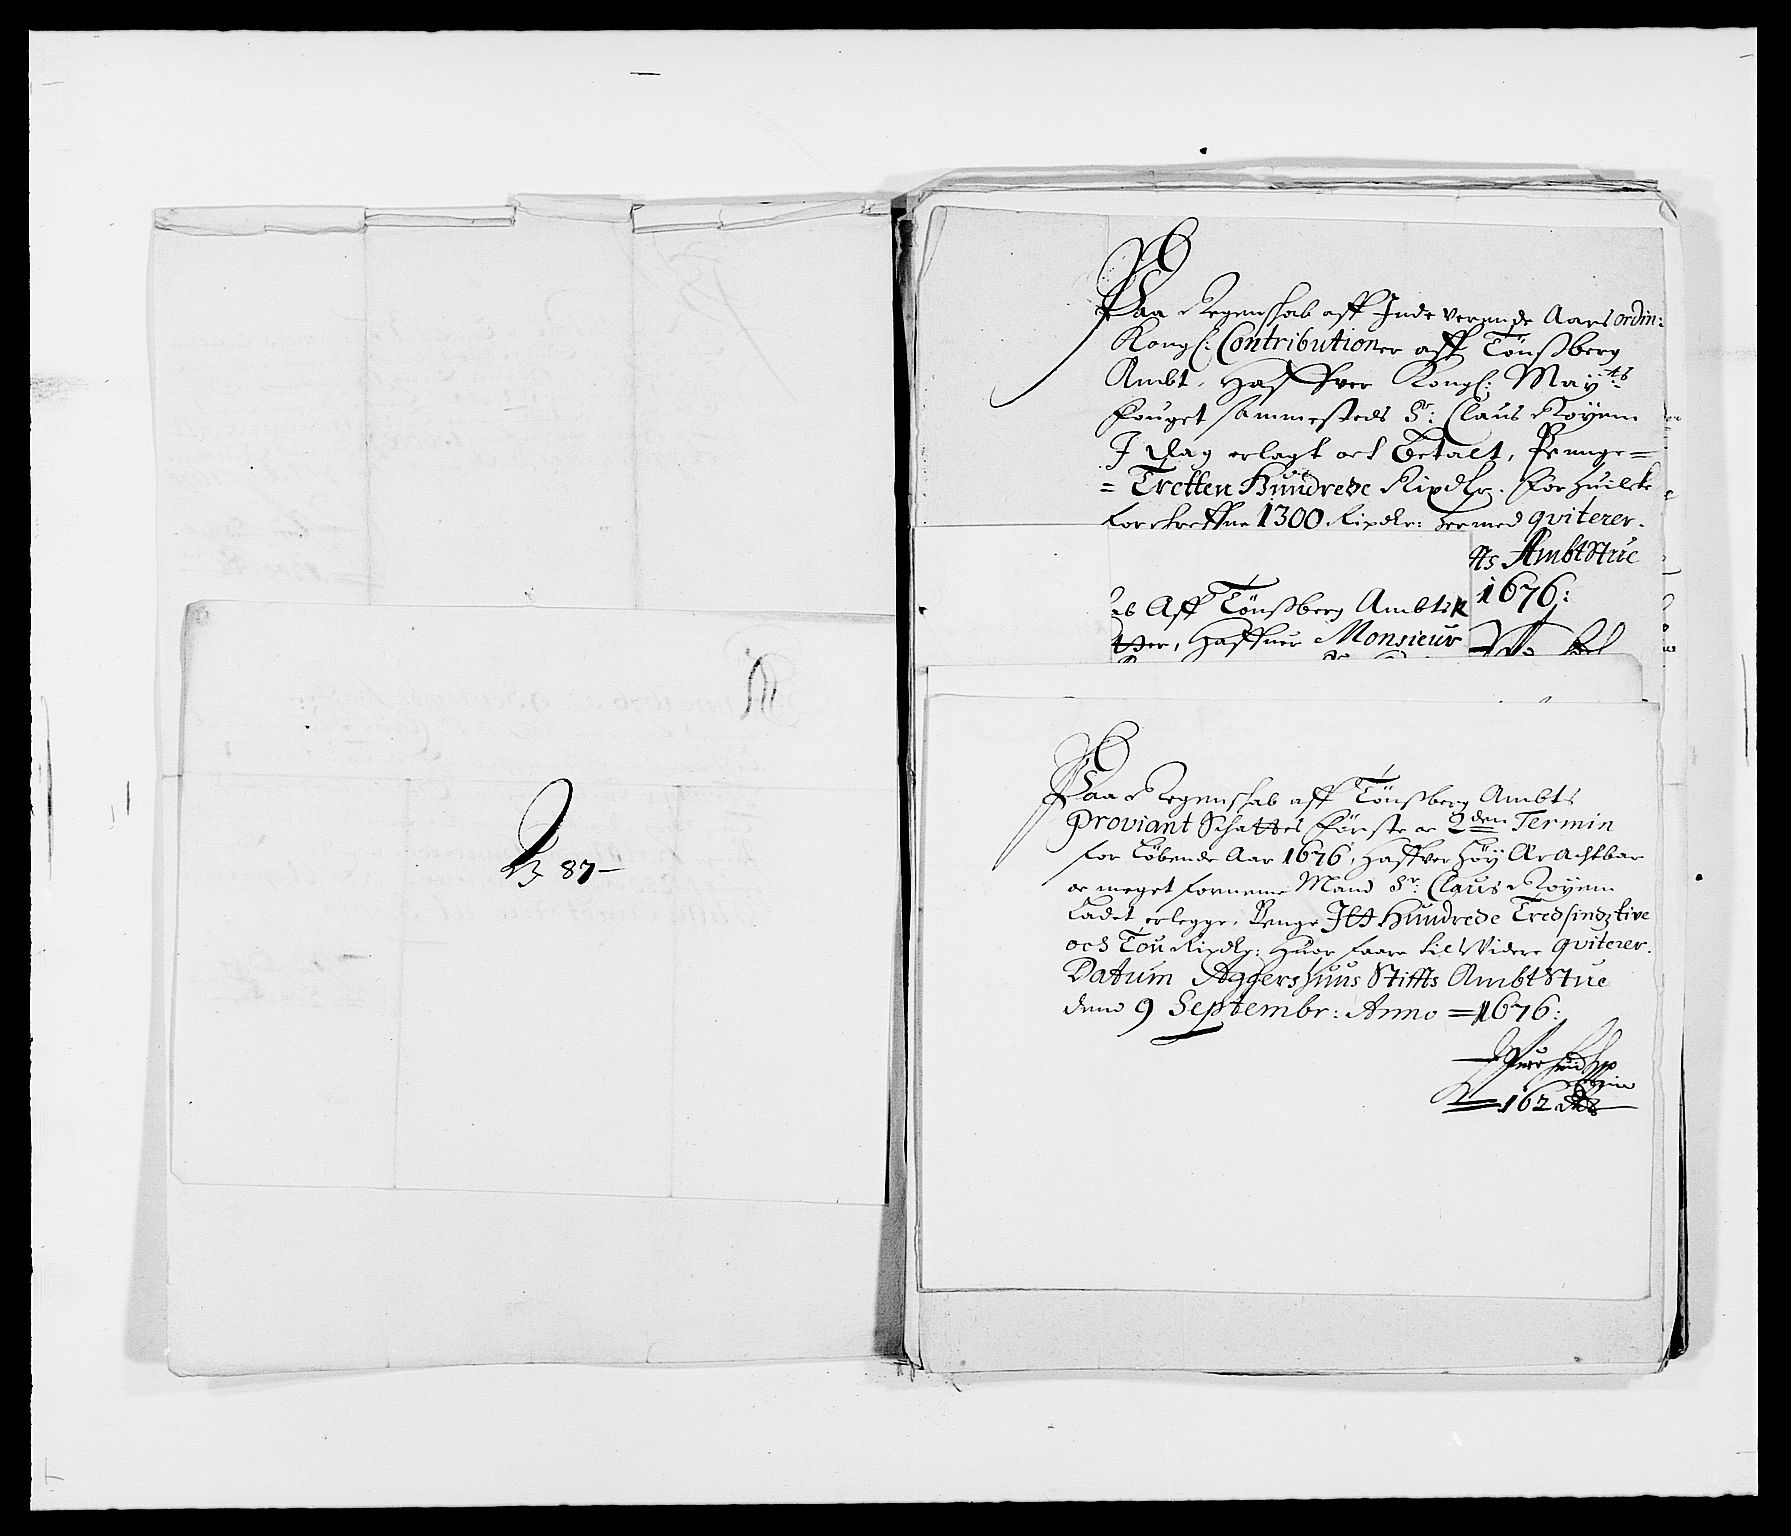 87
Paa Regenskab aff Inde verende Aars ordin:
Kongl: Contributioner aff Tönßberg
Ambt, Haffver Kongl: May:ts
Fouget sammesteds Sr: Claus Röyem
I dag erlagt och Betalt, Penge =
= Tretten Hundrede Rixdlr. for huilcke
forskreffne 1300 Rixdlr: hermed qviterer.
fts AmbtStue
1676:
Aff Tönßberg Ambts
Haffuer Monsieur
Paa Regenskab aff Tönßberg Ambts
Proviant Schattes förste oc 2den Termin
for Löbende Aar 1676, Haffver Höy Ærachtbar
oc meget fornemme Mand Sr: Claus Röyem
Ladet erlegge, Penge Itt Hundrede Tredsindztive
och Tou Rixdlr: Huor faare till Videre qviterer.
Datum Aggershuus Stiffts AmbtStue
denn 9 Septembr: Anno = 1676:
162